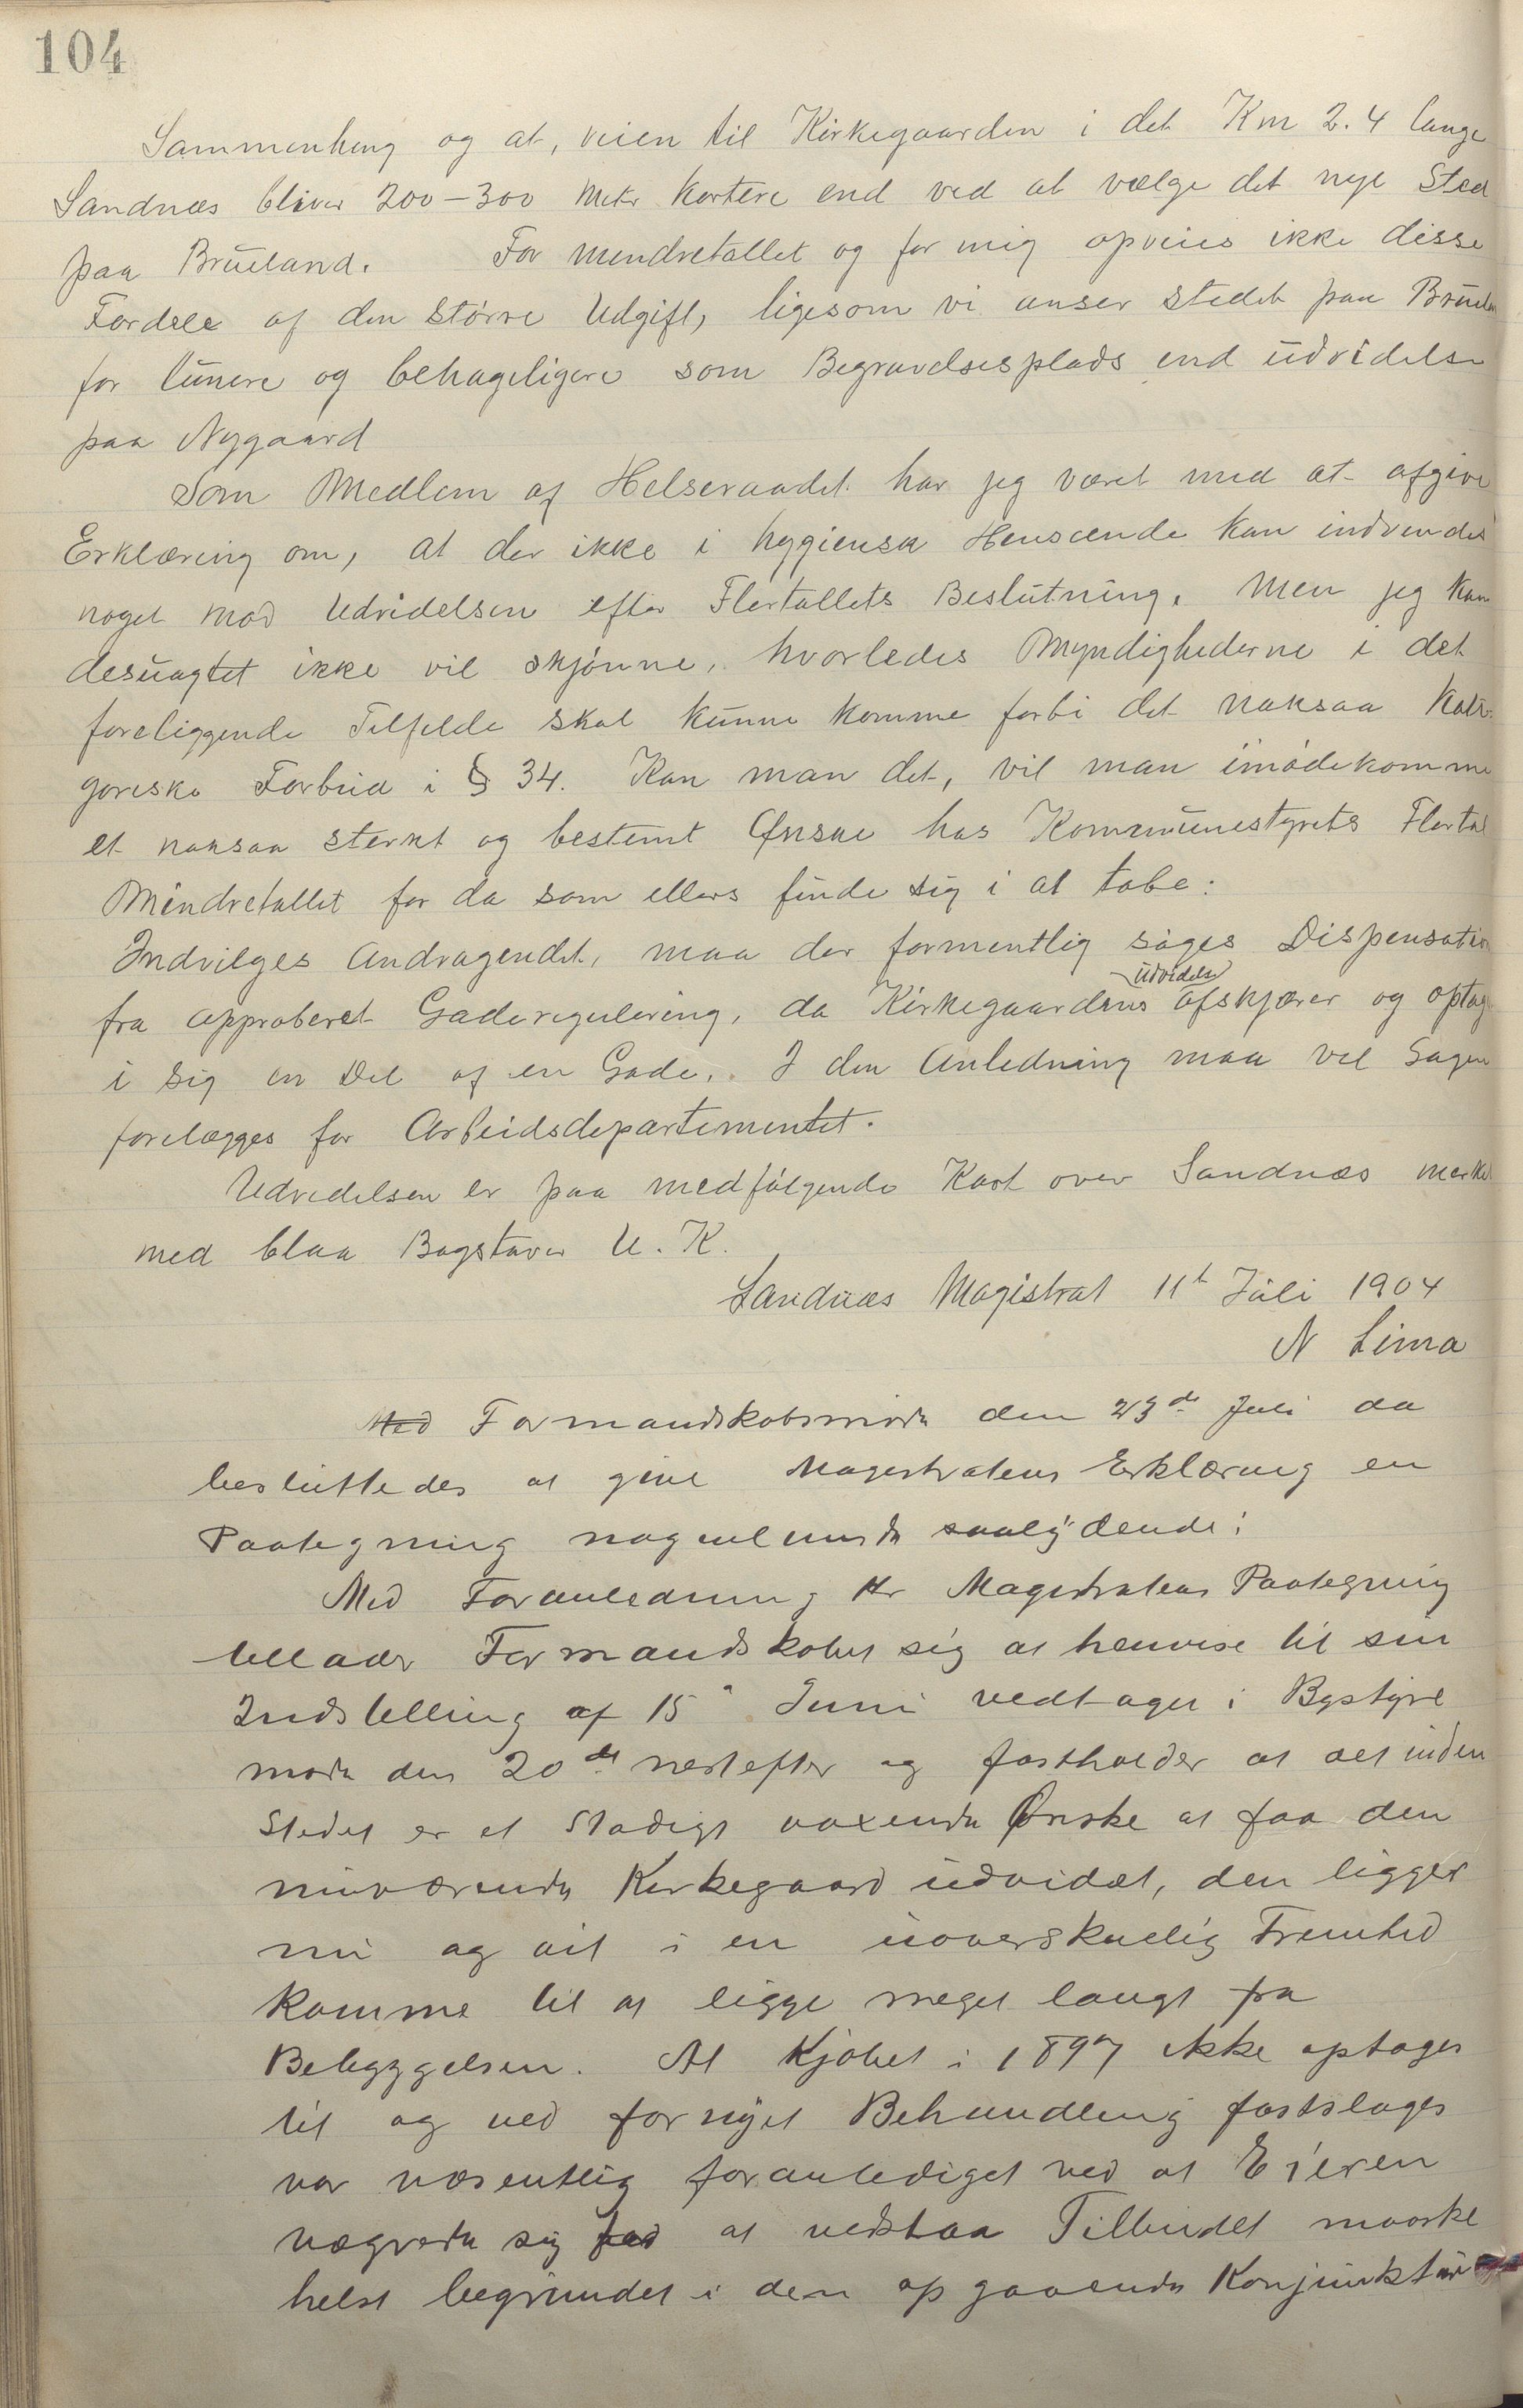 104
Sammenheng og at, veien til Kirkegaarden i det Km 2.4 lange
Sandnæs bliver 200-300 Metr kortere end ved at vælge det nye Sted
paa Brueland. For mindretallet og for mig opveies ikke disse
Fordele af den større Udgift, ligesom vi anser stedet paa Bruelan
for lunere og behageligere som Begravelsesplads end udvidelse
paa Nygaard
Som Medlem af Helseraadet har jeg været med at afgive
Erklæring om, at der ikke i hygiensk Henseende kan indvendes
noget mod Udvidelsen efter Flertallets Beslutning. Men jeg kan
desuagtet ikke vel skjønne, hvorledes Myndighederne i det
foreliggende Tilfelde skal kunne komme forbi det noksaa Kate-
goriske Forbud i § 34. Kan man det, vil man imødekomme
et noksaa sterkt og bestemt Ønske hos Kommunestyrets Flertal
Mindretallet for da som ellers finde sig i at tabe:
Indvilges Andragendet, maa der formentlig søges Dispensation
udvidelse
fra approberet Gaderegulering, da Kirkegaardens afskjærer og optag
i sig en Del af en Gade. I den Anledning maa vel Sagen
forelægges for Arbeidsdepartementet.
Udvidelsen er paa medfølgende Kart over Sandnæs merket
med blaa Bogstaver U. K.
Sandnæs Magistrat 11t Juli 1904
N Lima
Med Formandskabsmøde den 23de Juli da
besluttedes at give Magistratens Erklæring en
Paategning nogenlunde saalydende:
Med Foranledning Hr Magistratens Paategning
tillader Formandskabet sig at henvise til sin
Indstilling af 15de Juni vedtaget i Bystyre
møde den 20de næstefter og fastholder at det inden
Stedet er et stadigt voxende Ønske at faa den
nuværende Kirkegaard udvidet, den ligger
nu og vil i en uoverskuelig Fremtid
komme til at ligge meget langt fra
Bebyggelsen. At Kjøbet i 1897 ikke optoges
til og ved fornyet Behandling fastsloges
var væsentlig foranlediget ved at Eieren
vægrede sig for at vedstaa Tilbudet maaske
helst begrundet i den opgaaende Konjunktur